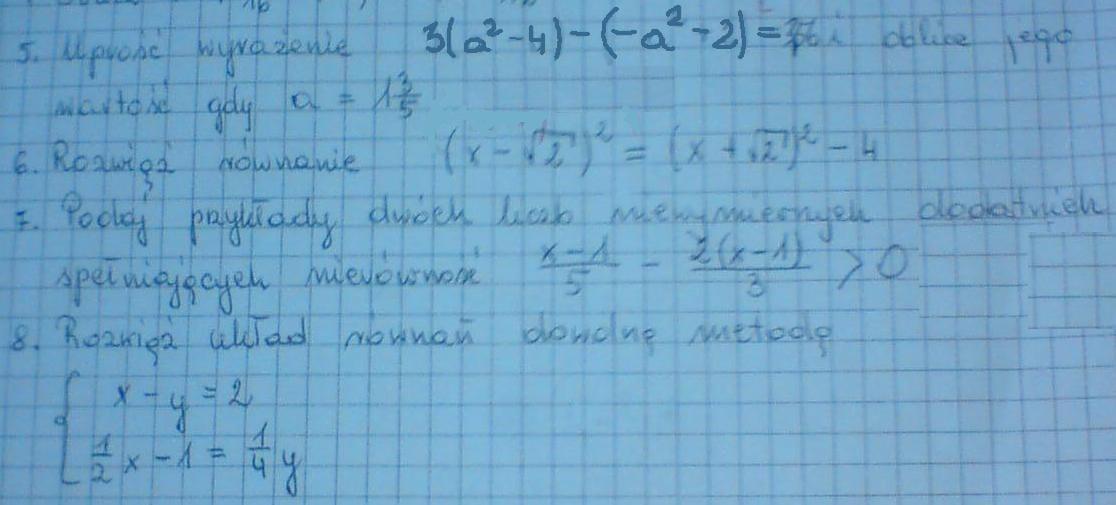 5. Uprość wyrażenie 3(a²-4)-(-a²-2)= i oblicz jego
wartość gdy a = 1 3/5
6. Rozwiąż równanie (x-√2)² = (x+√2)² - 4
7. Podaj przykłady dwóch liczb niewymiernych dodatnich
spełniających nierówność (x-1)/5 - 2(x-1)/3 > 0
8. Rozwiąż układ równań dowolną metodą
x - y = 2
1/2 x - 1 = 1/4 y